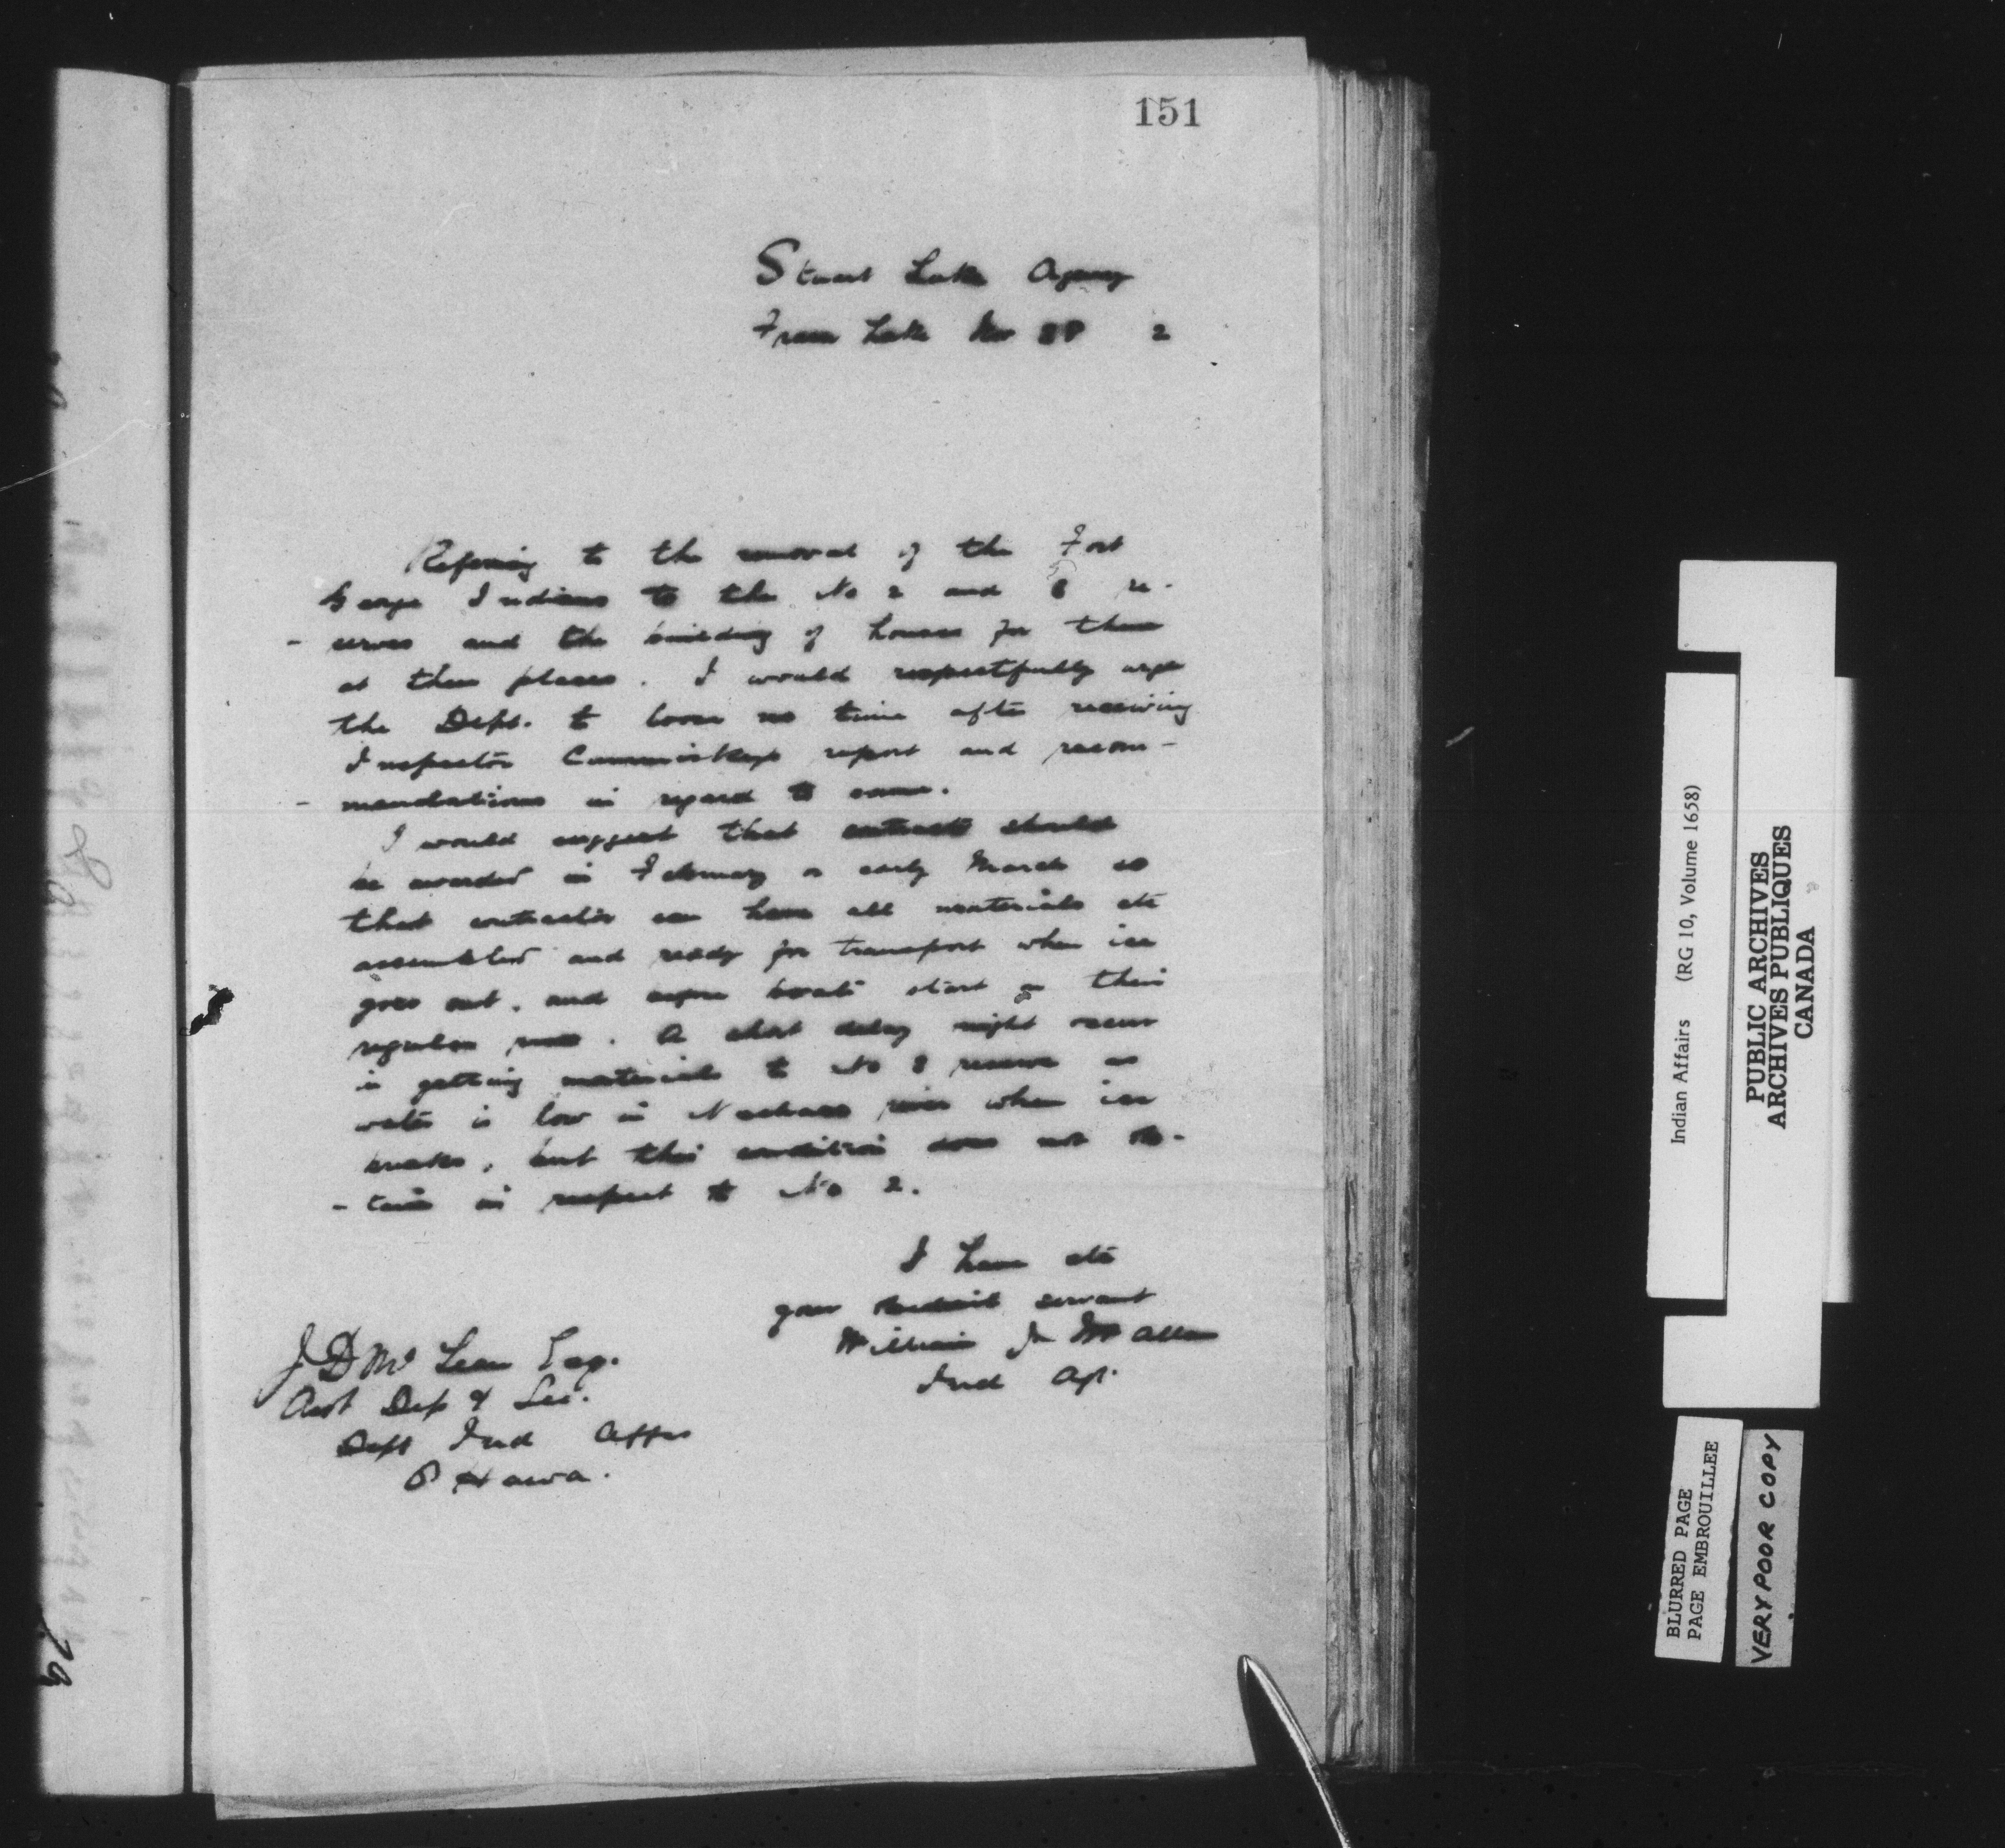 151
Stuart Lake Agency
Fraser Lake Nov 2
Referring to the removal of the Fort
George Indians to the No 2 and re-
- serves and the building of houses for them
at these places. I would respectfully urge
the Dept. to loose no time after receiving
Inspector Cummiskeys report and recom-
- mendations in regard to same.
I would suggest that contracts should
be awarded in February or early March so
that contractor can have all materials etc
assembled and ready for transport when ice
goes out, and before boats start on their
regular runs. A short delay might occur
in getting materials to No reserve as
water is low in Nechaco river when ice
breaks, but this condition does not ob-
- tain in respect to No 2.
I have etc
your obedient servant
William J Mc Allan
Ind Agt.
J D Mc Lean Esq.
Asst Dep & Sec.
Dept Ind Affrs
Ottawa.
Indian Affairs (RG 10, Volume 1658)
PUBLIC ARCHIVES
ARCHIVES PUBLIQUES
CANADA
BLURRED PAGE
PAGE EMBROUILLEE
VERY POOR COPY